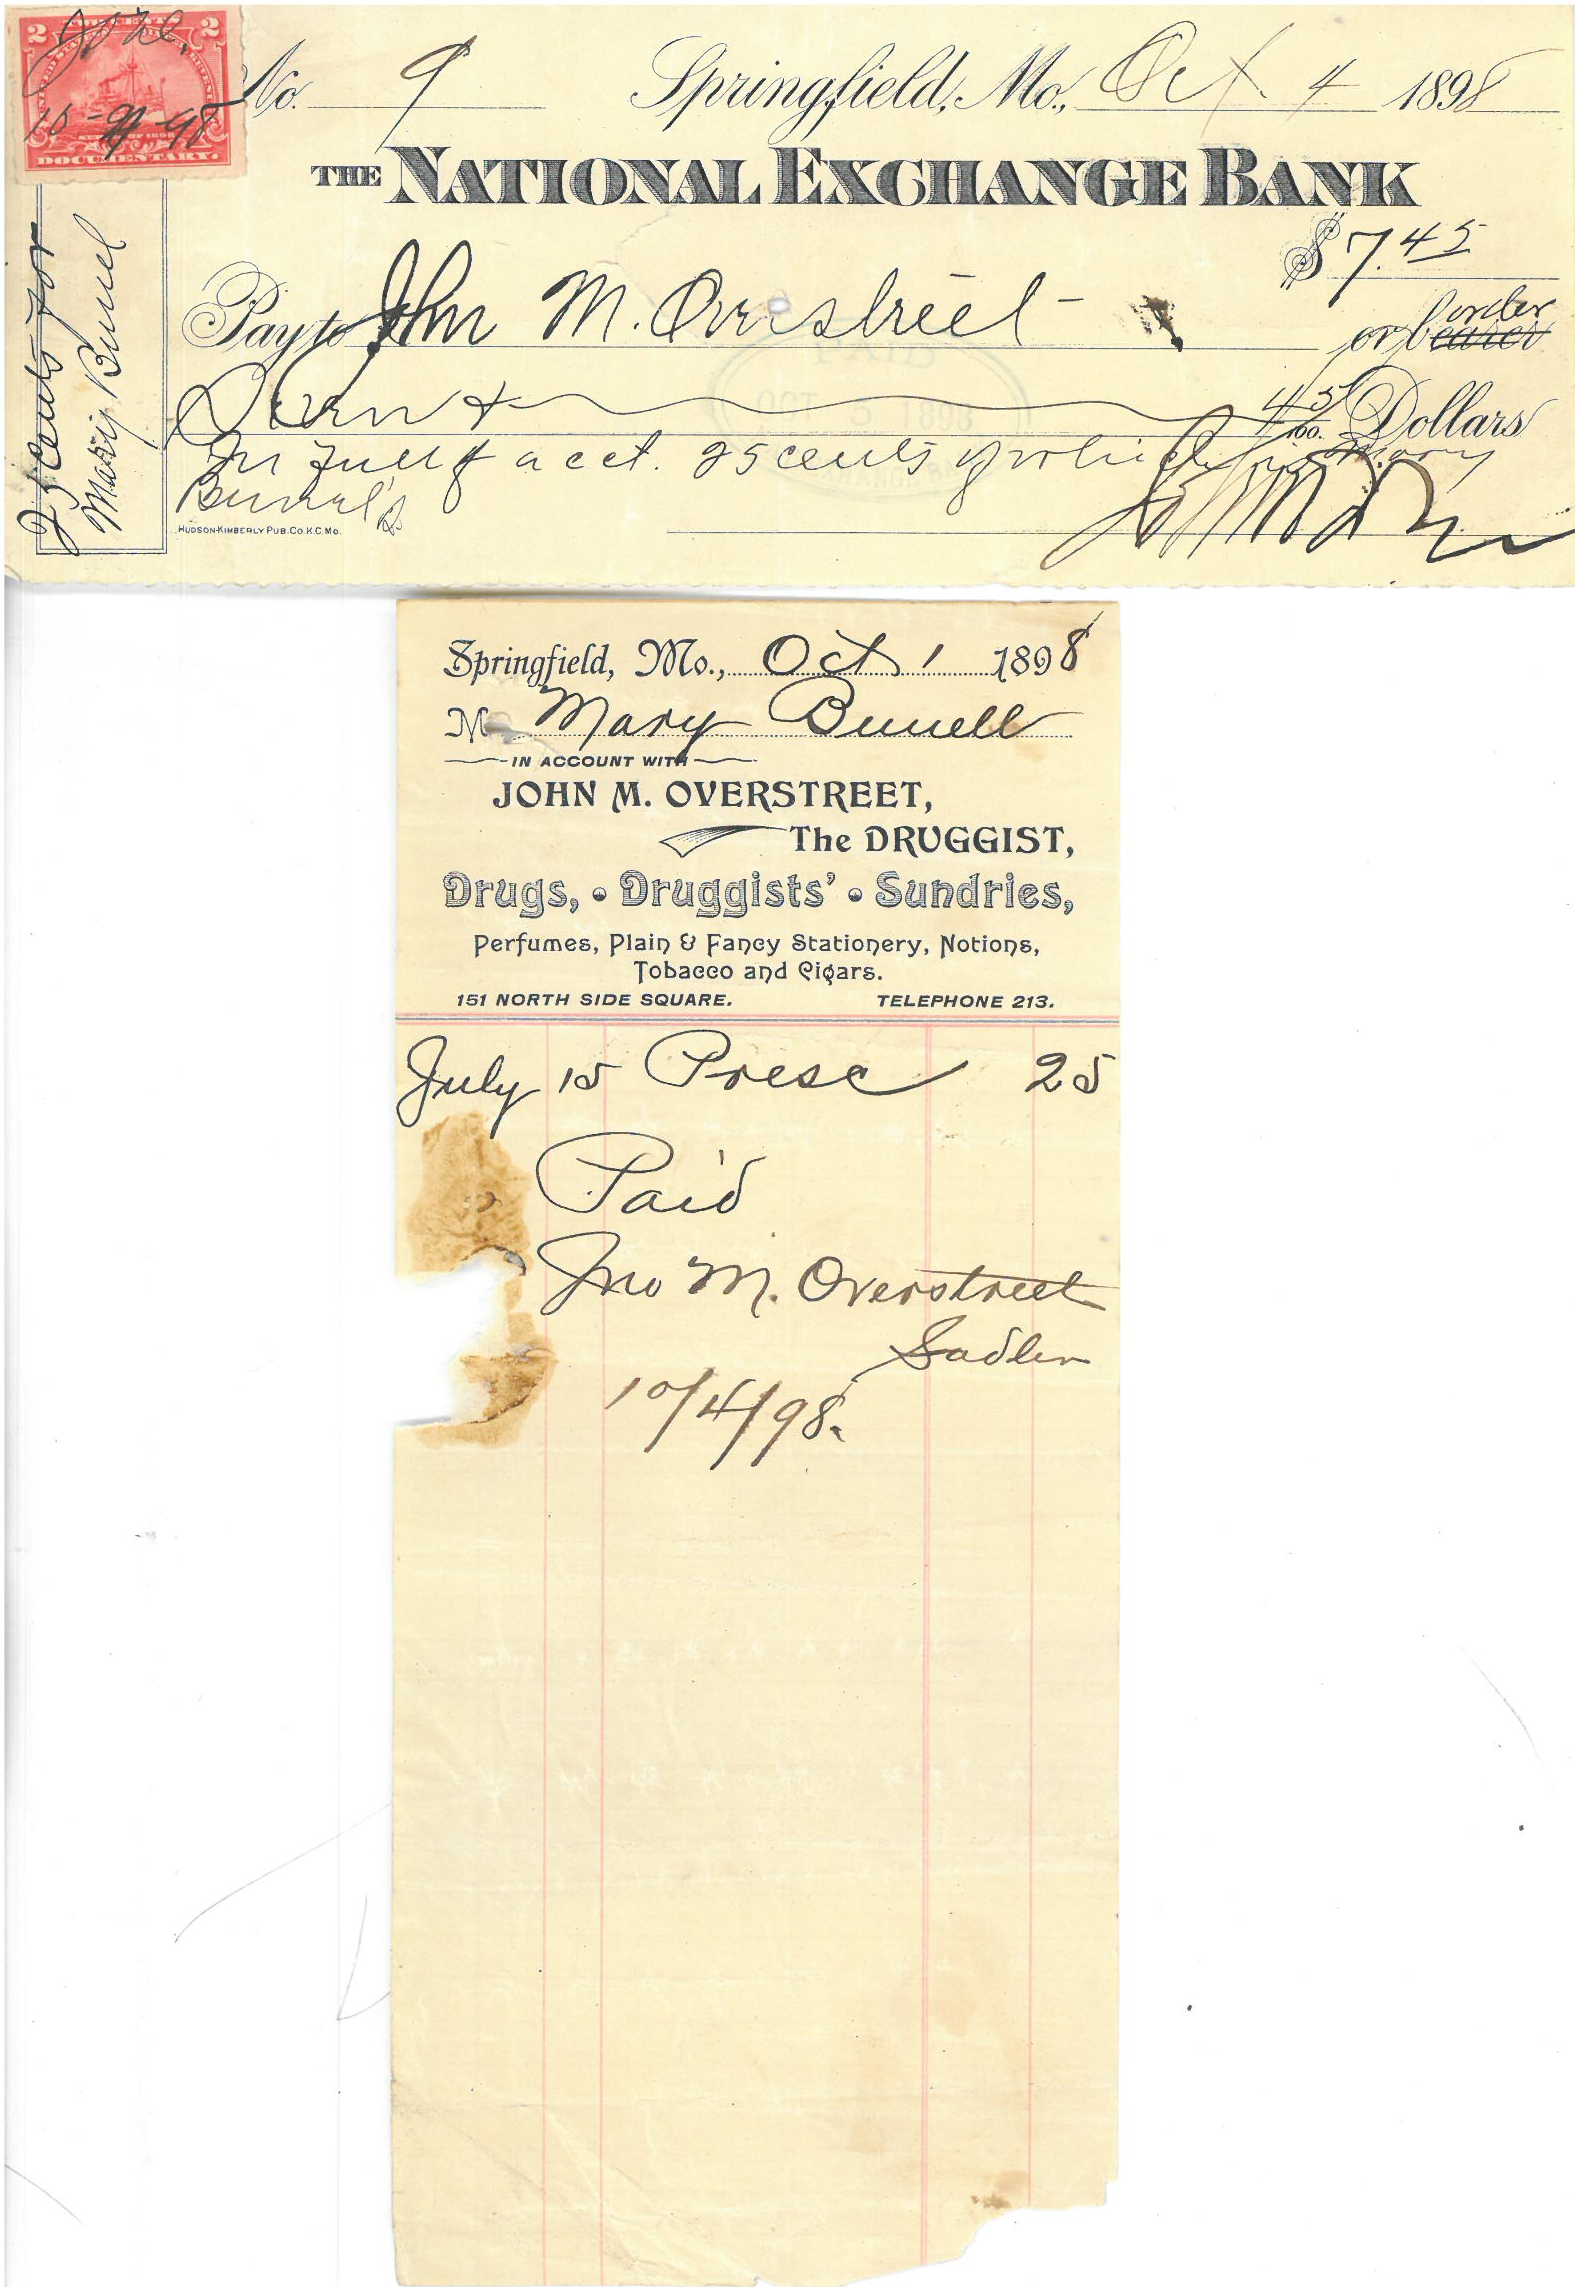 2 TWO CENTS 2
10-4-98
DOCUMENTARY.
No. 9 Springfield, Mo., Oct 4 1898
THE NATIONAL EXCHANGE BANK
$7.45
Pay to John M. Overstreet or bearer order
Seven & 45/100 Dollars
In full of acct. 25 cents of which is Mary
Burrel's
HUDSON-KIMBERLY PUB. CO. K.C. MO.
25 cents for
Mary Burrel
PAID
OCT 5 1898
EXCHANGE BANK
Springfield, Mo., Oct 1 1898
M Mary Burrell
IN ACCOUNT WITH
JOHN M. OVERSTREET,
The DRUGGIST,
Drugs, • Druggists' • Sundries,
Perfumes, Plain & Fancy Stationery, Notions,
Tobacco and Cigars.
151 NORTH SIDE SQUARE. TELEPHONE 213.
July 15 Presc 25
Paid
Jno M. Overstreet
Sadler
10/4/98.